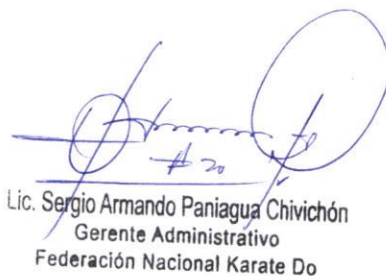 Lic. Sergio Armando Paniagua Chivichón
Gerente Administrativo
Federación Nacional Karate Do